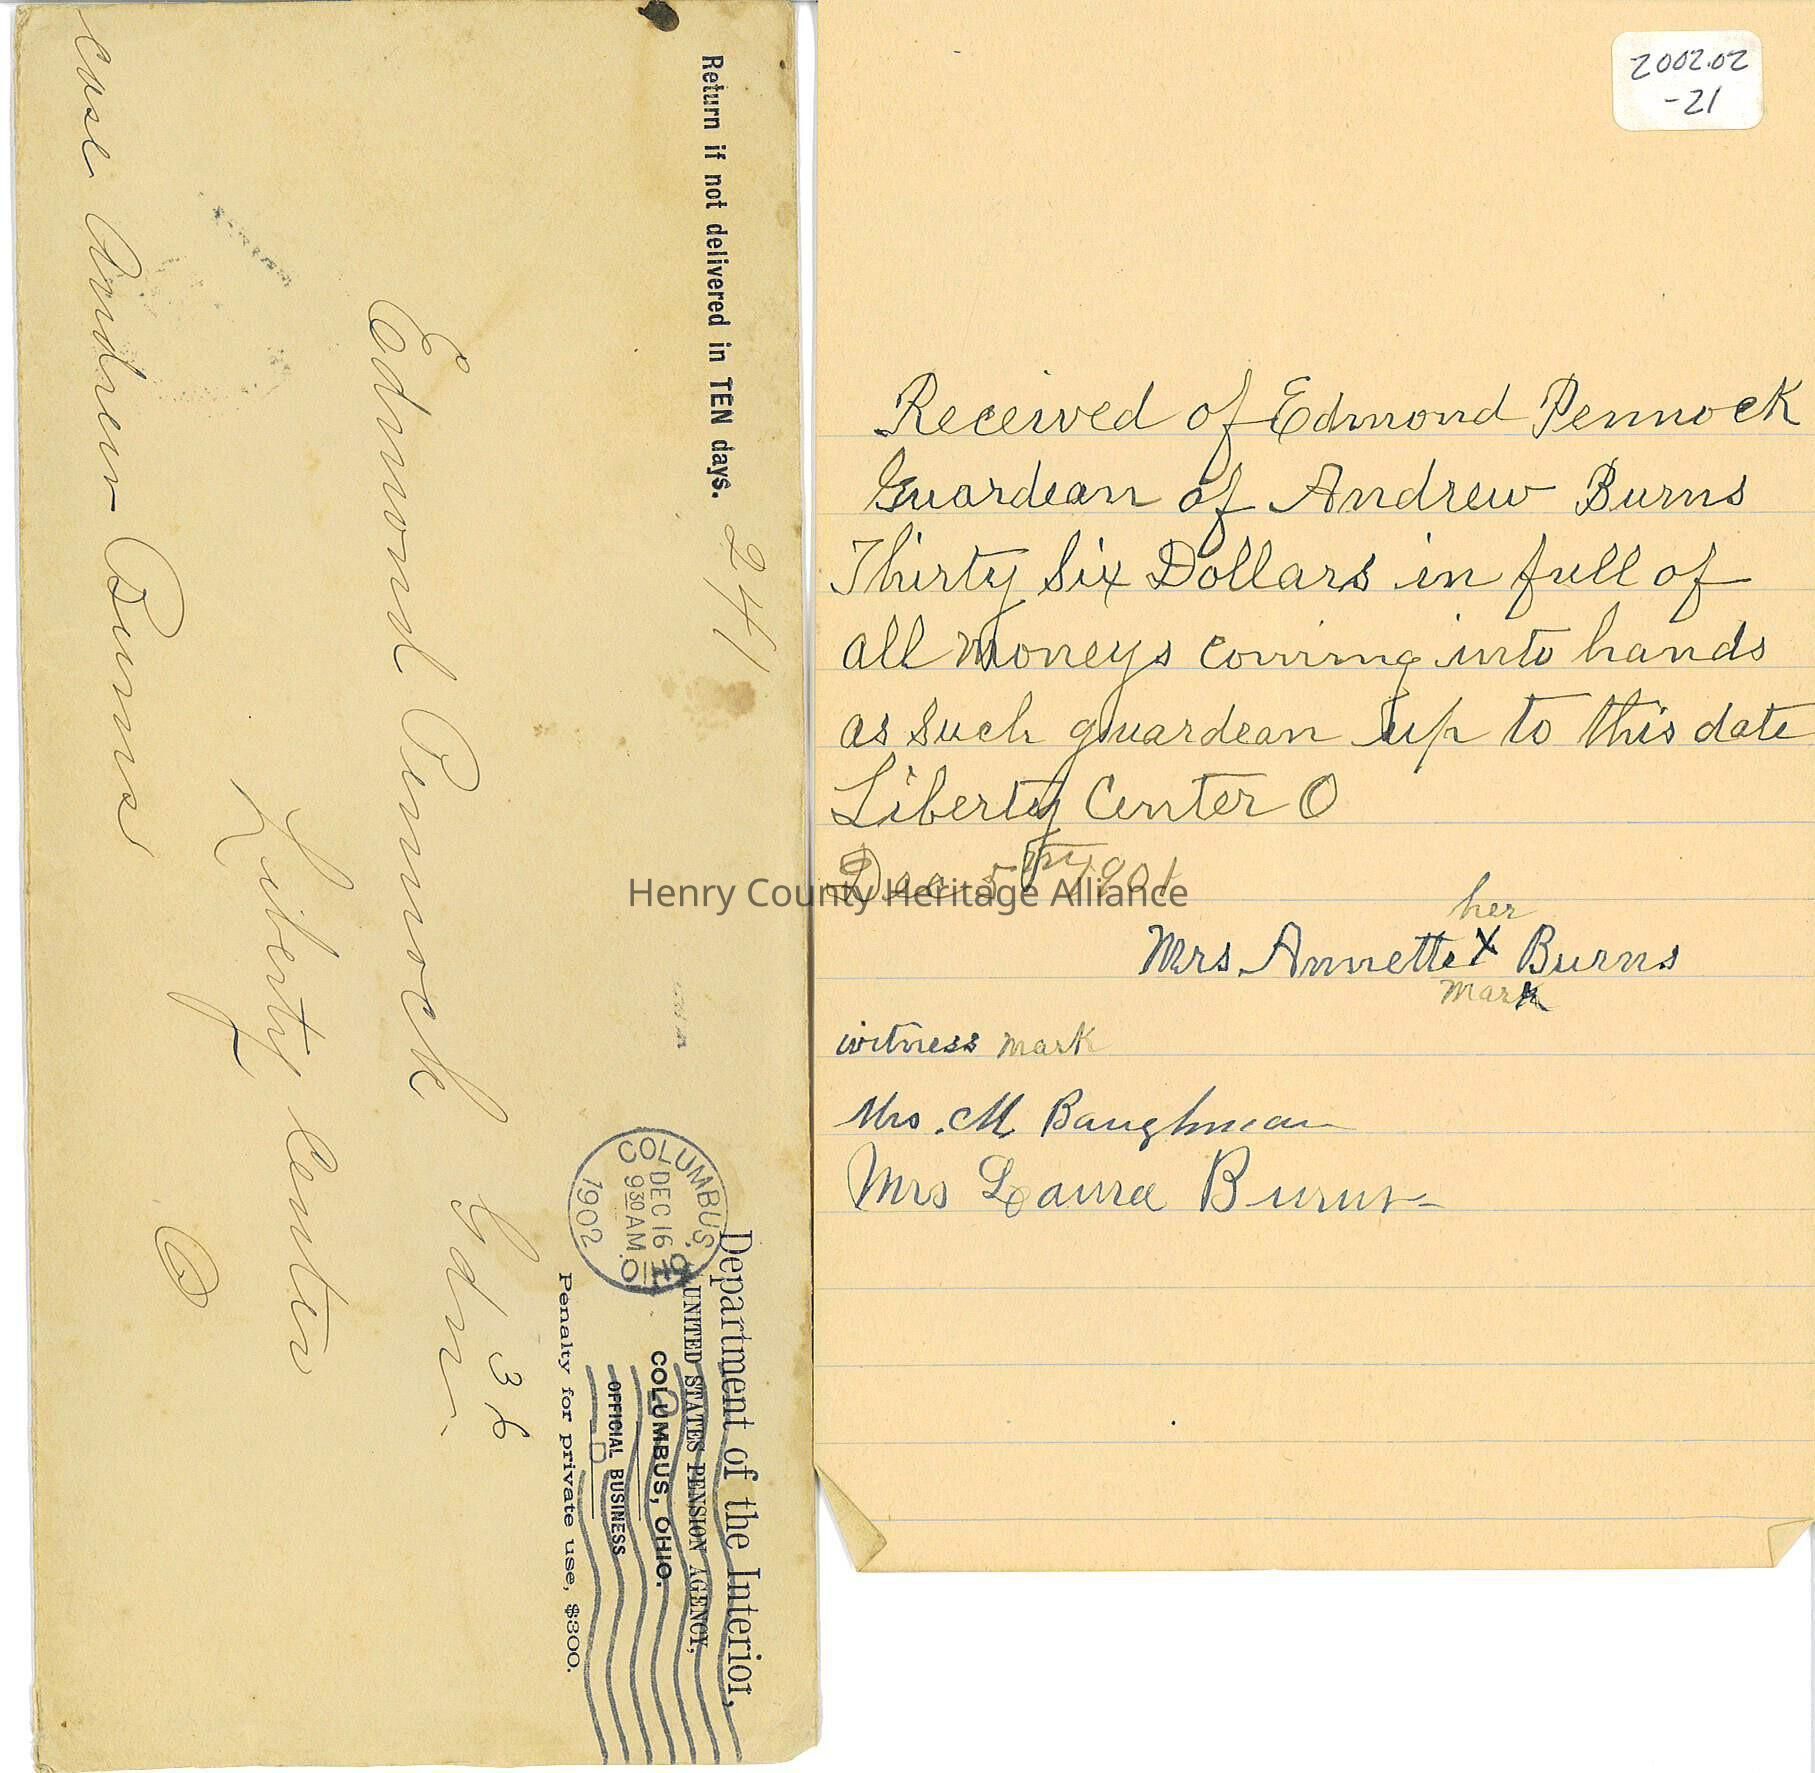 Return if not delivered in TEN days.
241
Department of the Interior,
UNITED STATES PENSION AGENCY,
COLUMBUS, OHIO.
OFFICIAL BUSINESS
Penalty for private use, $300.
COLUMBUS, O.
DEC 16
9 30 AM
1902
36
Edmond Pennock Gdn.
Liberty Center
O
case Andrew Burns
2002.02
-21
Received of Edmond Pennock
Guardean of Andrew Burns
Thirty Six Dollars in full of
all Moneys coming into hands
as such guardean up to this date
Liberty Center O
Dec 5th 1901
her
Mrs. Annette X Burns
mark
witness mark
Mrs. M Baughman
Mrs Laura Burns
Henry County Heritage Alliance